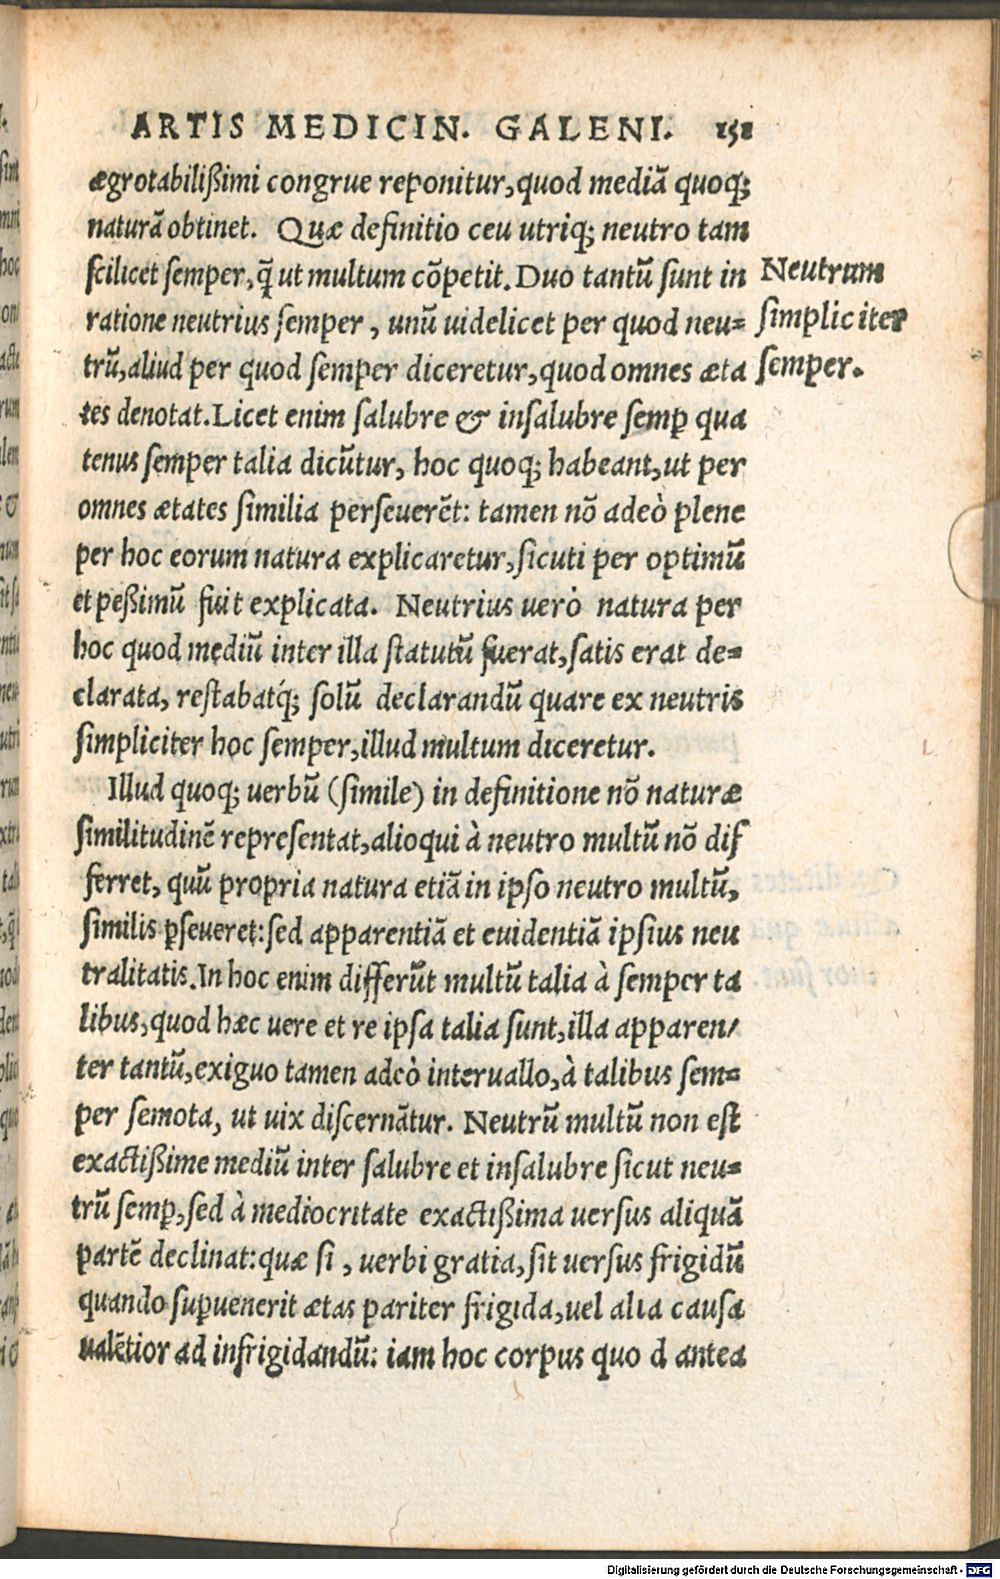 ARTIS MEDICIN. GALENI. 158
ægrotabilißimi congrue reponitur, quod mediā quoq;
naturā obtinet. Quæ definitio ceu utriq; neutro tam
scilicet semper, q̄ ut multum cōpetit. Duo tantū sunt in
ratione neutrius semper, unū uidelicet per quod neu=
trū, aliud per quod semper diceretur, quod omnes æta
tes denotat. Licet enim salubre & insalubre semp̱ qua
tenus semper talia dicūtur, hoc quoq; habeant, ut per
omnes ætates similia perseuerēt: tamen nō adeò plene
per hoc eorum natura explicaretur, sicuti per optimū
et peßimū fuit explicata. Neutrius uerò natura per
hoc quod mediū inter illa statutū fuerat, satis erat de=
clarata, restabatq́; solū declarandū quare ex neutris
simpliciter hoc semper, illud multum diceretur.
Illud quoq; uerbū (simile) in definitione nō naturæ
similitudinē repræsentat, alioqui à neutro multū nō dif
ferret, quū propria natura etiā in ipso neutro multū,
similis p̱seueret: sed apparentiā et euidentiā ipsius neu
tralitatis. In hoc enim differūt multū talia à semper ta
libus, quod hæc uere et re ipsa talia sunt, illa apparen/
ter tantū, exiguo tamen adeò interuallo, à talibus sem=
per semota, ut uix discernātur. Neutrū multū non est
exactißime mediū inter salubre et insalubre sicut neu=
trū semp̱, sed à mediocritate exactißima uersus aliquā
partē declinat: quæ si, uerbi gratia, sit uersus frigidū
quando sup̱uenerit ætas pariter frigida, uel alia causa
ualētior ad infrigidandū: iam hoc corpus quo d antea
Neutrum
simpliciter
semper.
Digitalisierung gefördert durch die Deutsche Forschungsgemeinschaft - DFG